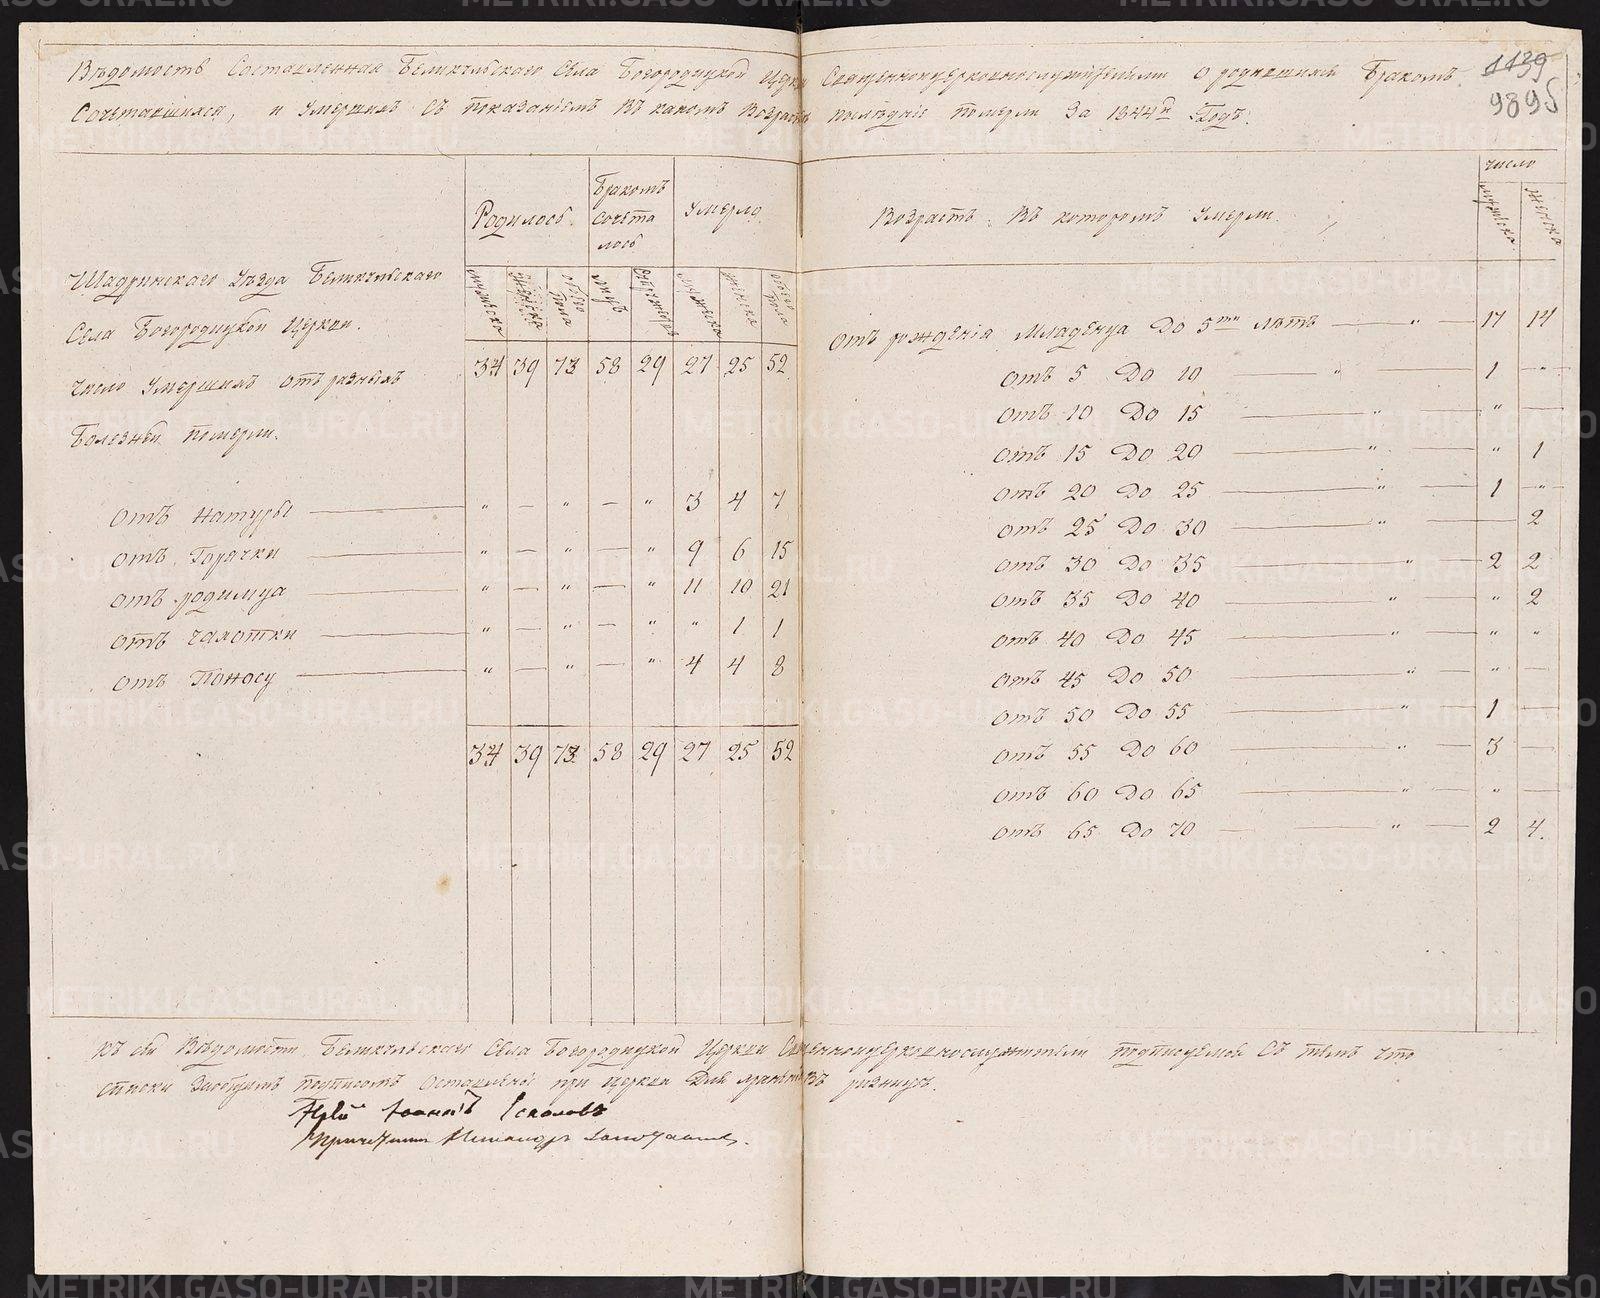 Вѣдомость Составленная Беликульскаго Села Богородицкой Церкви Священноцерковнослужителями О родившихся Бракомъ
Сочетавшихся, и Умершихъ Съ показаніемъ Въ какомъ Возрастѣ послѣдніе померли За 1844й Годъ.
1139
989б
Родилось
Бракомъ
сочета
лось
Умерло
Возрастъ Въ которомъ Умерли
число
мужеска
женска
мужеска
женска
обоего
пола
мужеска
женска
обоего
пола
Шадринскаго Уѣзда Беликульскаго
Села Богородицкой Церкви.
34 39 73 58 29 27 25 52
число Умершихъ отъ разныхъ
Болезней померли.
отъ Натуры — „ — „ — „ 3 4 7
отъ Горячки — „ — „ — „ 9 6 15
отъ родимца — „ — „ — „ 11 10 21
отъ чахотки — „ — „ — „ „ 1 1
отъ Поносу — „ — „ — „ 4 4 8
34 39 73 58 29 27 25 52
отъ рожденія Младенца До 5ти лѣтъ — „ — 17 14
отъ 5 До 10 — „ — 1 „
отъ 10 До 15 — „ — „ —
отъ 15 До 20 — „ — „ 1
отъ 20 До 25 — „ — 1 „
отъ 25 До 30 — „ — 2
отъ 30 До 35 — „ — 2 2
отъ 35 До 40 — „ — „ 2
отъ 40 До 45 — „ — „ „
отъ 45 До 50 — „ — „ —
отъ 50 До 55 — „ — 1 —
отъ 55 До 60 — „ — 3 —
отъ 60 До 65 — „ — „ —
отъ 65 До 70 — „ — 2 4.
Къ сей Вѣдомости Беликульскаго Села Богородицкой Церкви Священноцерковнослужители подписуемся Съ тѣмъ что
списки заобщимъ подписомъ Оставлены при церкви Для храненія Въ ризницѣ.
Іоаннъ
METRIKI.GASO-URAL.RU